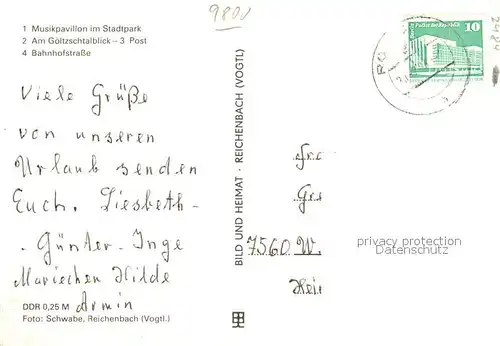 1 Musikpavillon im Stadtpark
2 Am Göltzschtalblick – 3 Post
4 Bahnhofstraße
Viele Grüße
von unseren
Urlaub senden
Euch. Liesbeth-
- Günter - Inge
Marischen Hilde
Armin
DDR 0,25 M
Foto: Schwabe, Reichenbach (Vogtl.)
BILD UND HEIMAT · REICHENBACH (VOGTL)
9801
10
Palast der Republik
RO
7560 W.
privacy protection
AnsichtskartenVersand.com